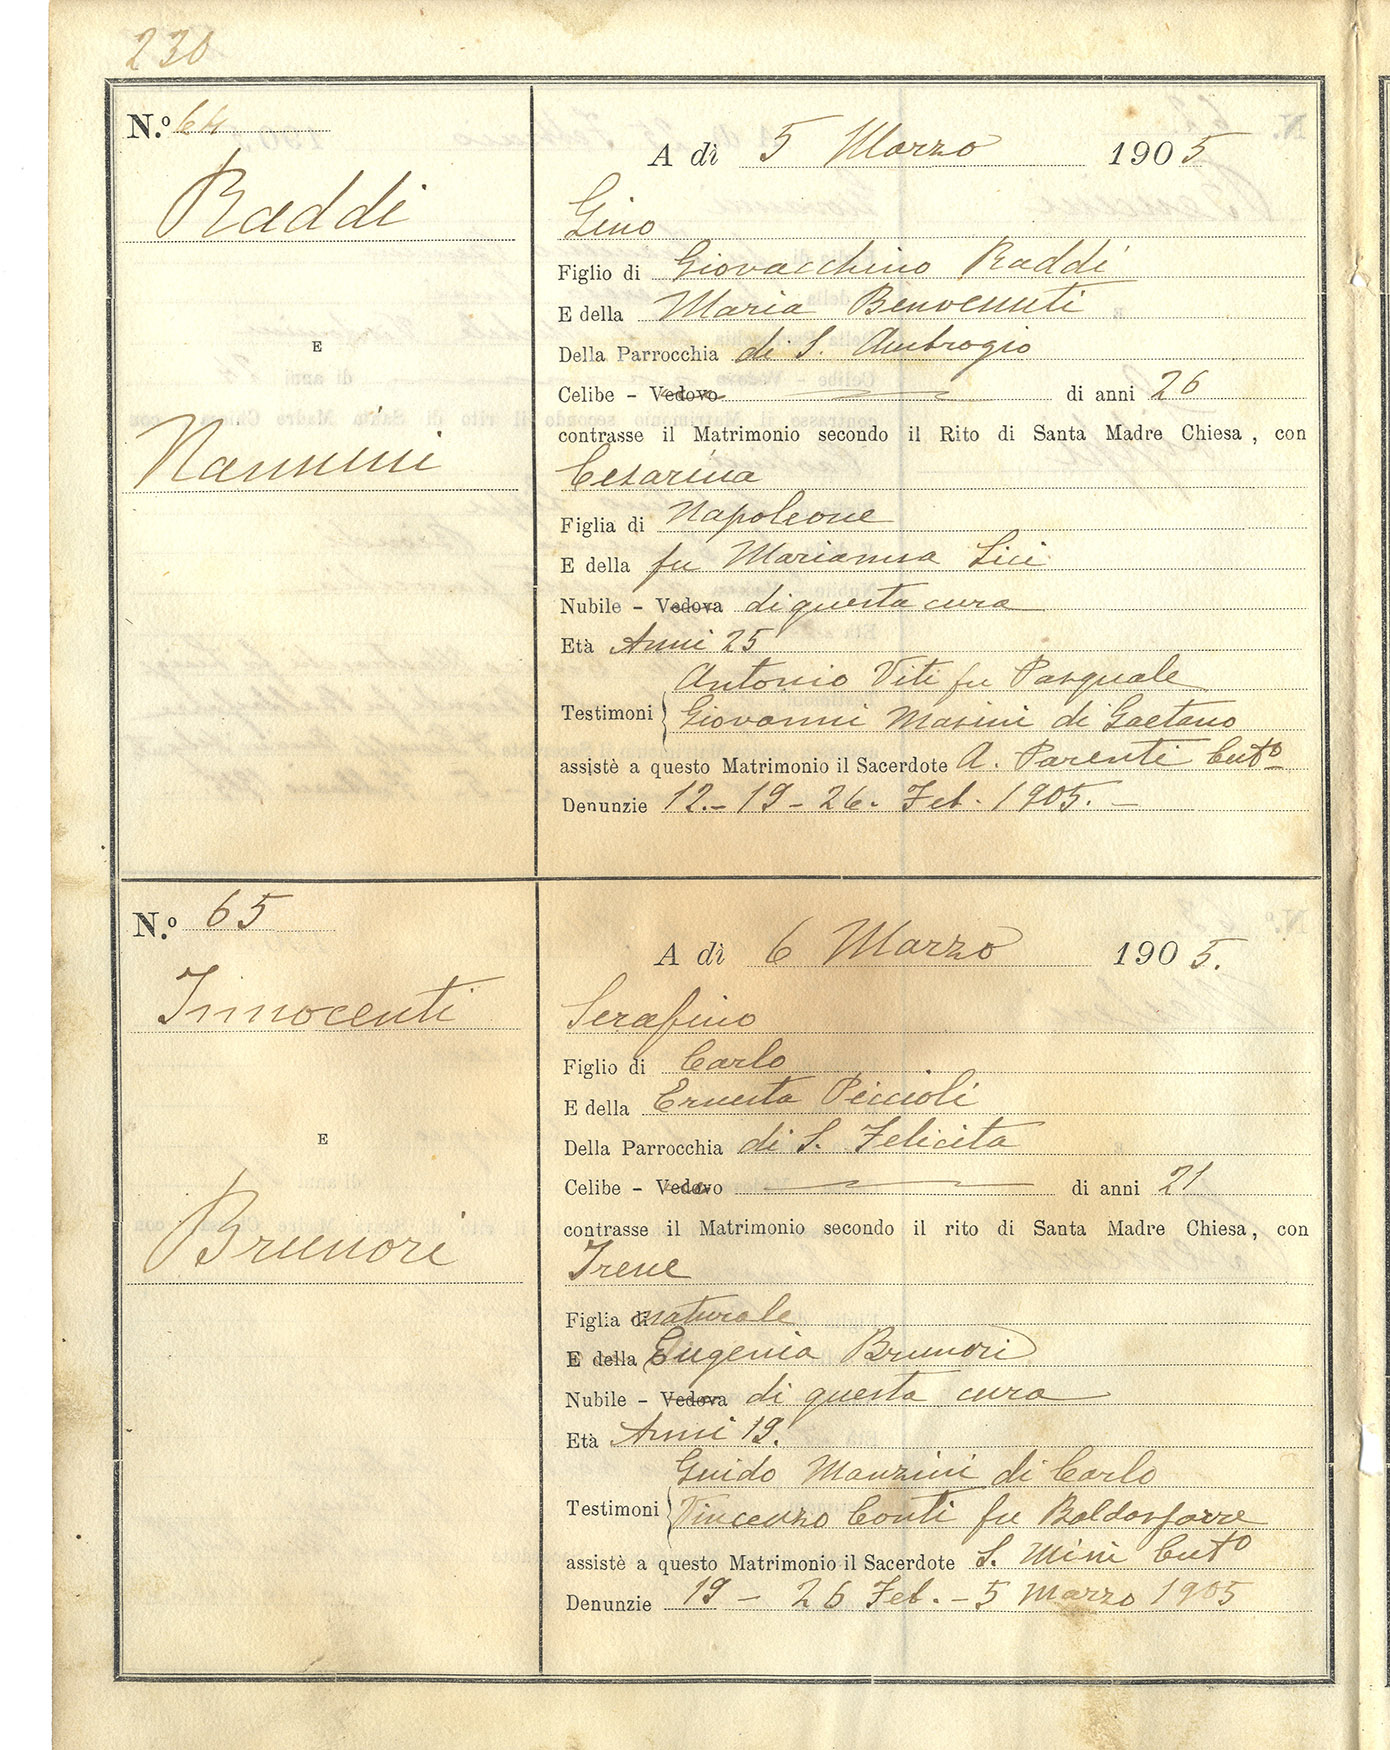 230
N.º 64
Raddi
E
Nannini
A dì 5 Marzo 1905
Gino
Figlio di Giovacchino Raddi
E della Maria Benvenuti
Della Parrocchia di S. Ambrogio
Celibe - Vedovo di anni 26
contrasse il Matrimonio secondo il Rito di Santa Madre Chiesa, con
Cesarina
Figlia di Napoleone
E della fu Marianna Lici
Nubile - Vedova di questa cura
Età Anni 25
Antonio Viti fu Pasquale
Testimoni Giovanni Masini di Gaetano
assistè a questo Matrimonio il Sacerdote A. Parenti Cutº
Denunzie 12.- 19 - 26. Feb. 1905. -
N.º 65
Innocenti
E
Brunori
A dì 6 Marzo 1905.
Serafino
Figlio di Carlo
E della Ernesta Piccioli
Della Parrocchia di S. Felicita
Celibe - Vedovo di anni 21
contrasse il Matrimonio secondo il rito di Santa Madre Chiesa, con
Irene
Figlia di naturale
E della Eugenia Brunori
Nubile - Vedova di questa cura
Età Anni 19.
Guido Manzini di Carlo
Testimoni Vincenzo Conti fu Baldassarre
assistè a questo Matrimonio il Sacerdote S. Mini Cutº
Denunzie 19 - 26 Feb. - 5 Marzo 1905